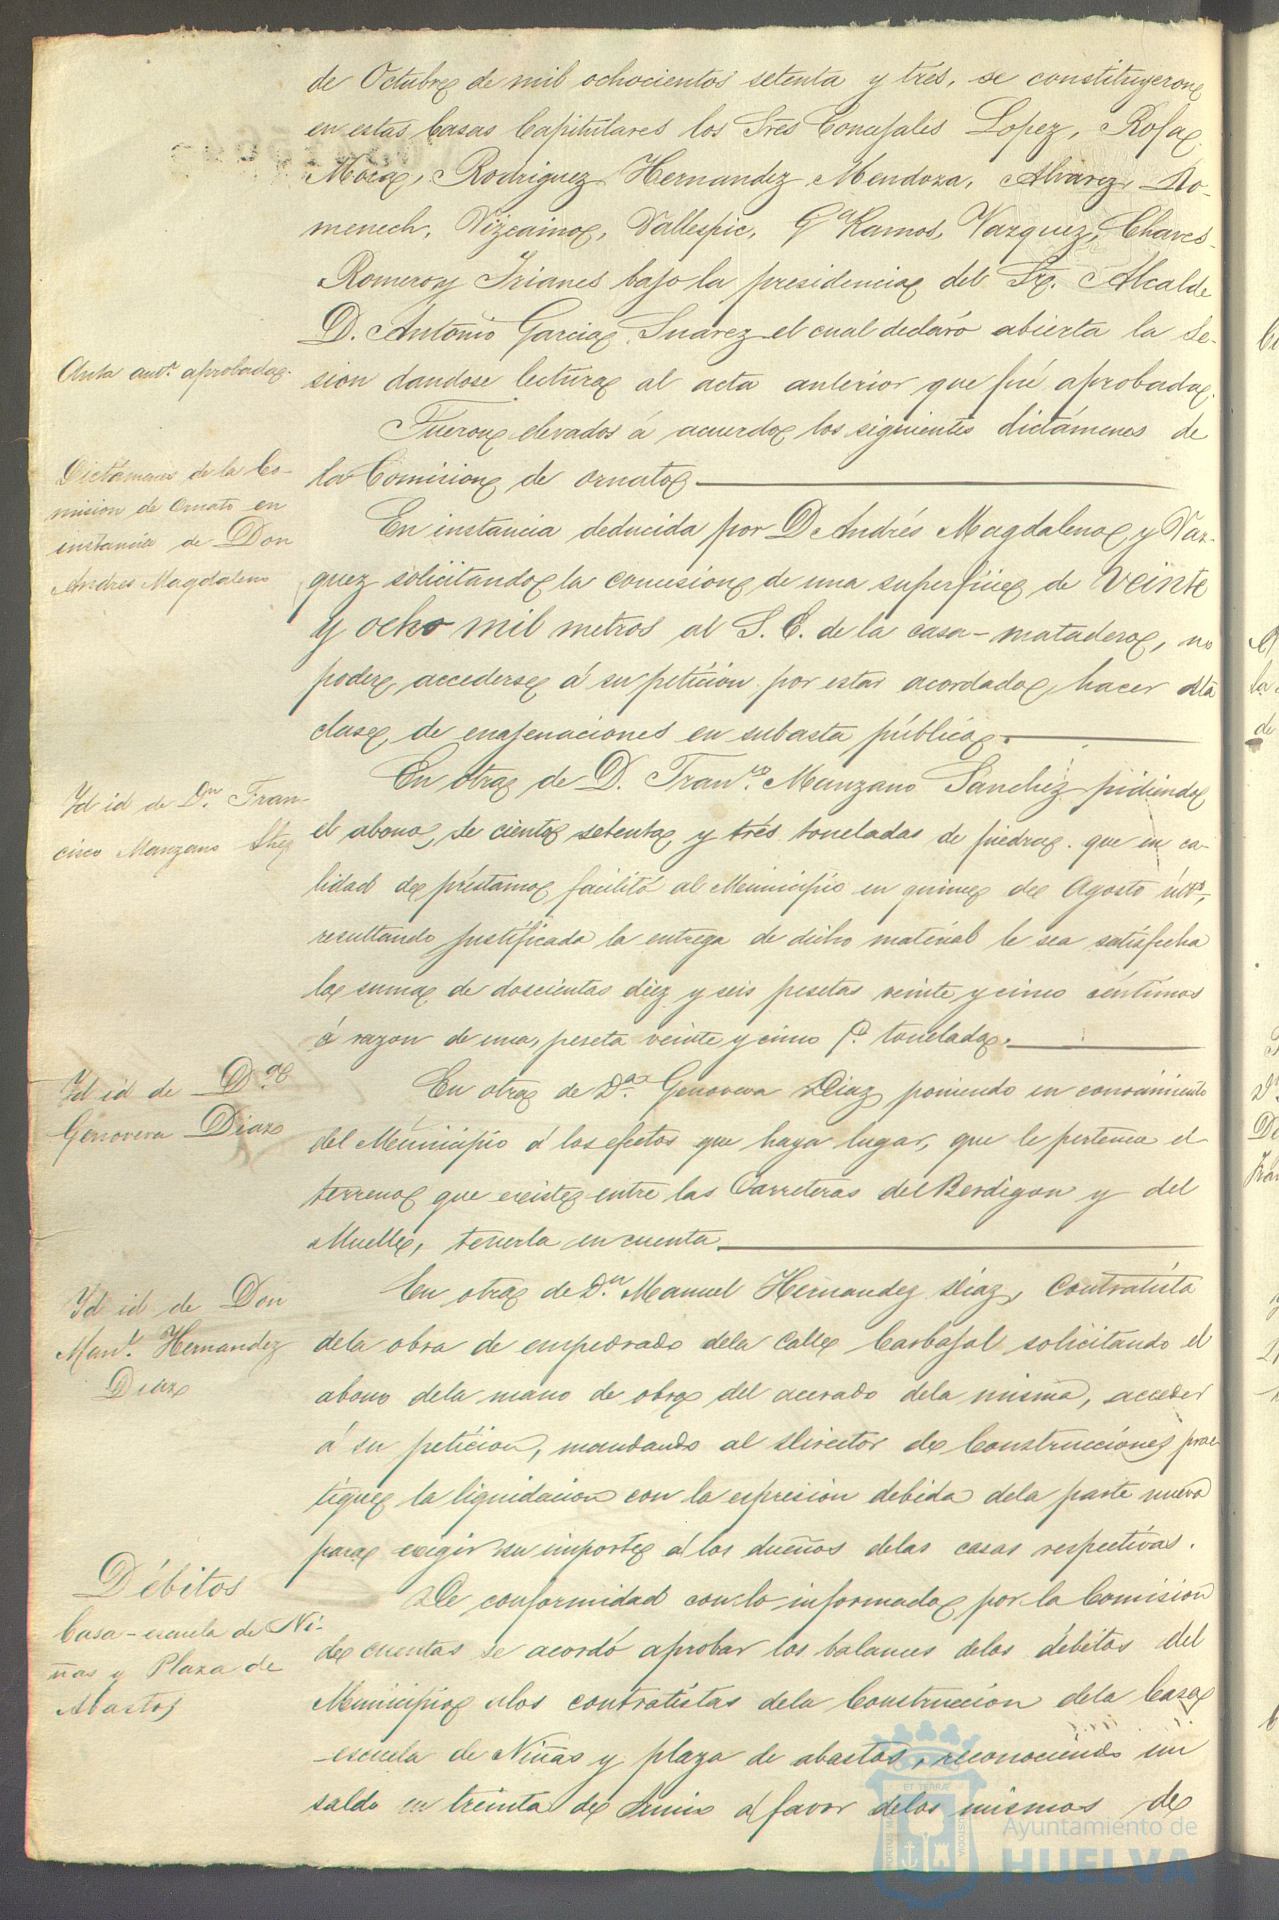 de Octubre de mil ochocientos setenta y tres, se constituyeron
en estas Casas Capitulares los Sres Concejales López, Rofa,
Mora, Rodriguez, Hernandez, Mendoza, Alvarez, Do-
menech, Vizcaino, Vallespic, Gª Ramos, Vazquez, Chaves
Romero y Trianes bajo la presidencia del Sr. Alcalde
D. Antonio Garcia Suarez el cual declaró abierta la Se-
Acta antr. aprobada.
sion dandose lectura al acta anterior que fué aprobada.
Fueron elevados á acuerdo los siguientes dictámenes de
Dictámenes de la Co-
mision de Ornato en
instancia de Don
Andres Magdaleno
la Comision de ornato
En instancia deducida por D. Andrés Magdaleno y Vaz-
quez solicitando la concesion de una superficie de veinte
y ocho mil metros al S. E. de la casa-matadero, no
poder accederse á su peticion por estar acordado, hacer esta
clase de enajenaciones en subasta pública.
Id id de Dn. Fran-
cisco Manzano Shez
En otra de D. Franco Manzano Sanchez pidiendo
el abono de ciento setenta y tres toneladas de piedra que en ca-
lidad de préstamo facilitó al Municipio en quince de Agosto últº,
resultando justificada la entrega de dicho material le sea satisfecha
la suma de doscientas diez y seis pesetas veinte y cinco céntimos
á razon de una peseta veinte y cinco pr. tonelada.
Id id de Dª
Genoveva Diaz
En otra de Dª. Genoveva Diaz poniendo en conocimiento
del Municipio á los efectos que haya lugar, que le pertenece el
terreno que existe entre las Carreteras del Berdigon y del
Muelle, tenerla en cuenta.
Id id de Don
Manl. Hernandez
Diaz
En otra de Dn. Manuel Hernandez Diaz, Contratista
de la obra de empedrado de la calle Carbajal solicitando el
abono de la mano de obra del acerado de la misma, acceder
á su peticion, mandando al Director de Construcciones prac
tique la liquidacion con la espresion debida de la parte nueva
para exigir su importe á los dueños de las casas respectivas.
Débitos
Casa-escuela de Ni-
ñas y Plaza de
Abastos
De conformidad con lo informado por la Comision
de cuentas se acordó aprobar los balances de los débitos del
Municipio á los contratistas de la Construccion de la Casa
-escuela de Niñas y plaza de abastos, reconociendo un
saldo en treinta de Junio á favor de los mismos de
Ayuntamiento de
HUELVA